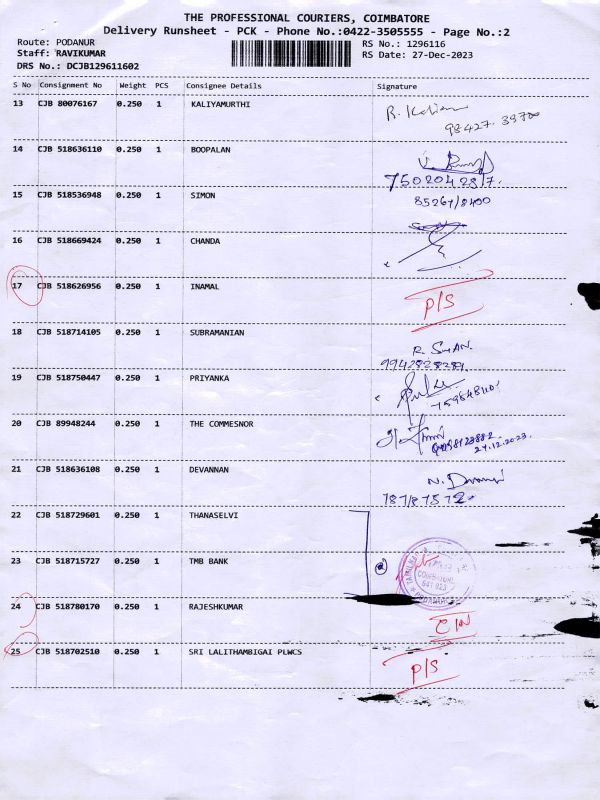 THE PROFESSIONAL COURIERS, COIMBATORE
Delivery Runsheet - PCK - Phone No.:0422-3505555 - Page No.:2
Route: PODANUR
RS No.: 1296116
Staff: RAVIKUMAR
RS Date: 27-Dec-2023
DRS No.: DCJB129611602
S No Consignment No Weight PCS Consignee Details Signature
13 CJB 80076167 0.250 1 KALIYAMURTHI
98427 39700
14 CJB 518636110 0.250 1 BOOPALAN
7502042817.
15 CJB 518536948 0.250 1 SIMON
16 CJB 518669424 0.250 1 CHANDA
17 CJB 518626956 0.250 1 INAMAL P/S
18 CJB 518714105 0.250 1 SUBRAMANIAN
19 CJB 518750447 0.250 1 PRIYANKA
20 CJB 89948244 0.250 1 THE COMMESNOR
27.12.2023.
21 CJB 518636108 0.250 1 DEVANNAN
22 CJB 518729601 0.250 1 THANASELVI
23 CJB 518715727 0.250 1 TMB BANK
COIMBATORE
641 023
24 CJB 518780170 0.250 1 RAJESHKUMAR
25 CJB 518702510 0.250 1 SRI LALITHAMBIGAI PLWCS P/S